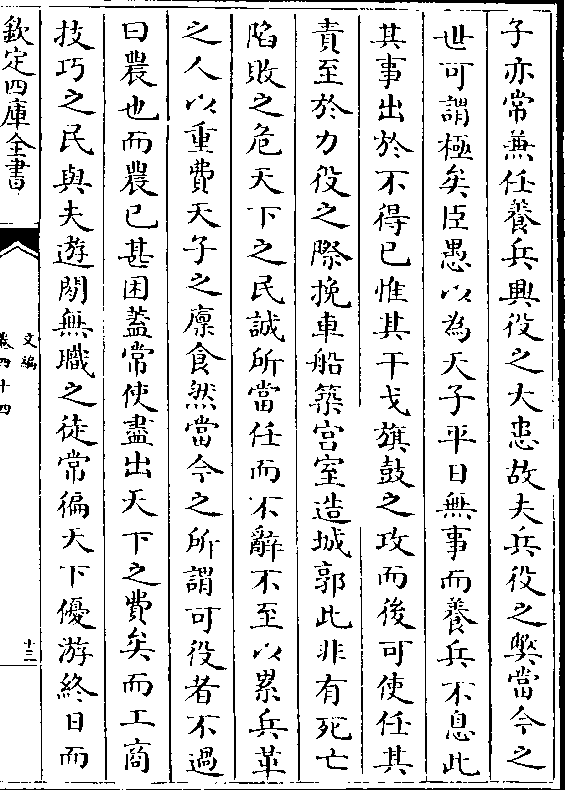 子亦常兼任養兵興役之大患故夫兵役之弊當今之
世可謂極矣臣愚以為天子平日無事而養兵不息此
其事出於不得已惟其干戈旗鼓之攻而後可使任其
責至於力役之際挽車船築宫室造城郭此非有死亡
陷敗之危天下之民誠所當任而不辭不至以累兵革
之人以重費天子之廪食然當今之所謂可役者不過
曰農也而農已甚困蓋常使盡出天下之費矣而工商
技巧之民與夫遊閑無職之徒常徧天下優游終日而
欽定四庫全書
文編
卷四十四
十三